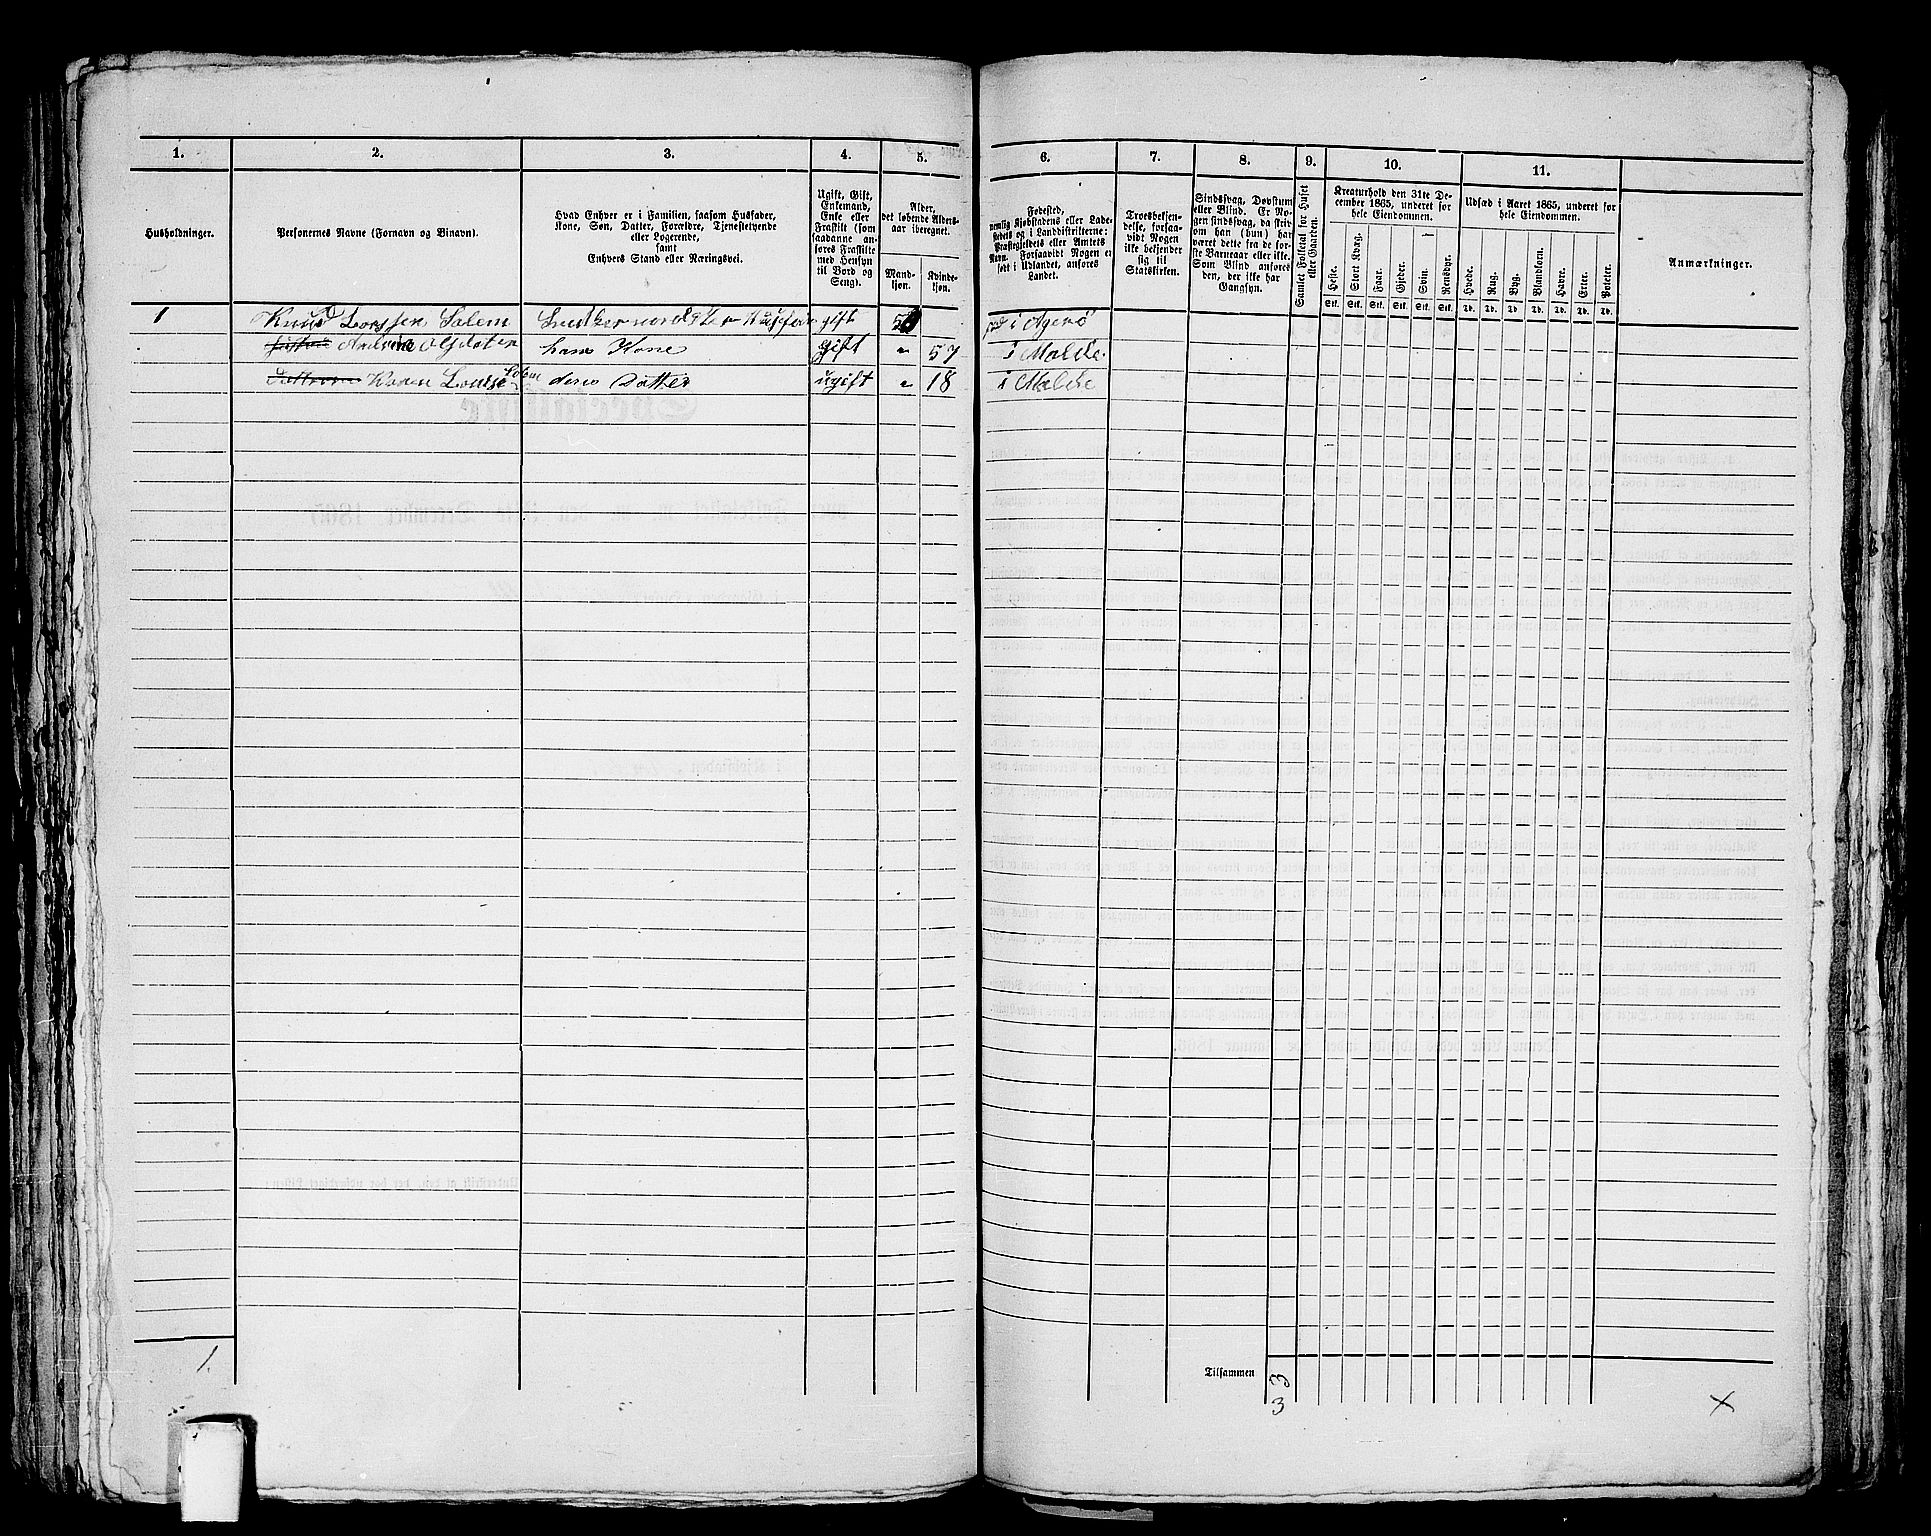 1.
2.
3.
4.
5.
Husholdninger.
Personernes Navne (Fornavn og Binavn).
Hvad Enhver er i Familien, saasom Husfader,
Kone, Søn, Datter, Forældre, Tjenestetyende
eller Logerende,
samt
Enhvers Stand eller Næringsvei.
Ugift, Gift,
Enkemand,
Enke eller
Fraskilt (som
saadanne an-
føres Fraskilte
med Hensyn
til Bord og
Seng).
Alder,
det løbende Alders-
aar iberegnet.
Mand-
kjøn.
Kvinde-
kjøn.
6.
7.
8.
9.
10.
11.
Fødested,
nemlig Kjøbstadens eller Lade-
stedets og i Landdistrikterne:
Præstegjeldets eller Amtets
Navn. Forsaavidt Nogen er
født i Udlandet, anføres
Landet.
Troesbekjen-
delse, forsaa-
vidt Nogen
ikke bekjender
sig til
Statskirken.
Sindssvag, Døvstum
eller Blind. Er No-
gen sindssvag, da skriv
om han (hun) har
været dette fra de før-
ste Barneaar eller ikke.
Som Blind anføres
den, der ikke har
Gangsyn.
Samlet Folketal for Huset
eller Gaarden.
Kreaturhold den 31te De-
cember 1865, underet for
hele Eiendommen.
Heste.
Stort Kvæg.
Faar.
Gjeder.
Svin.
Rensdyr.
Stk. Stk. Stk. Stk. Stk. Stk.
Udsæd i Aaret 1865, underet for
hele Eiendommen.
Hvede.
Rug.
Byg.
Blandkorn.
Havre.
Erter.
Poteter.
Td. Td. Td. Td. Td. Td. Td.
Anmærkninger.
1 Knud Larssen Solem gift i Agerø
hans Kone gift " 57 i Molde
Karen Louise Solem deres Datter ugift " 18 i Molde
1.
Tilsammen 3
3